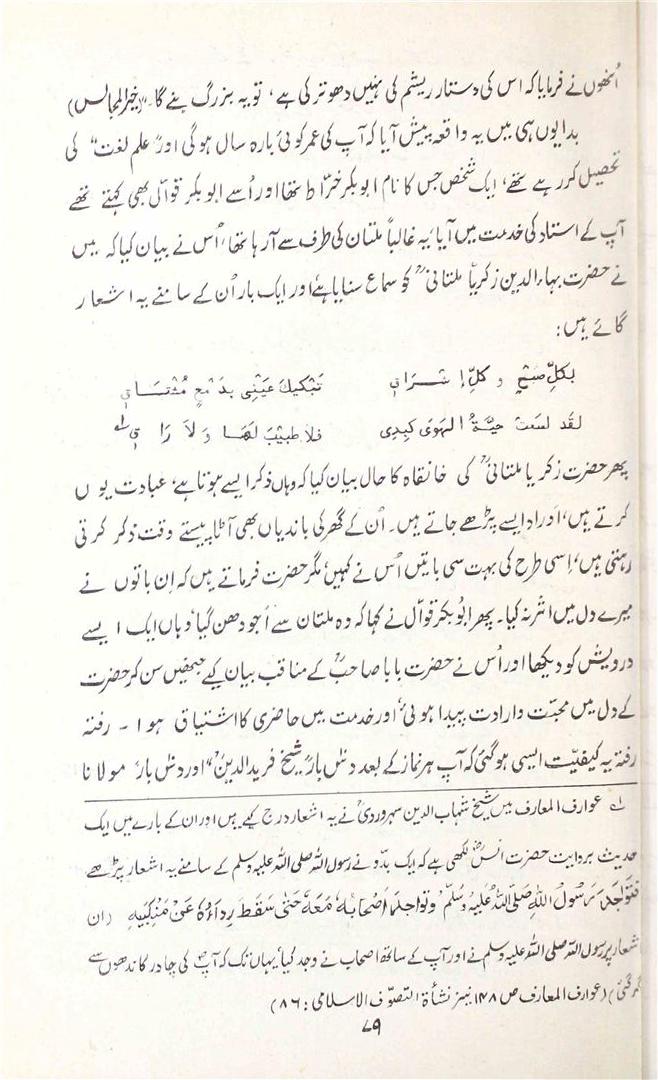 اُنھوں نے فرمایا کہ اس کی دستار ریشم کی نہیں دھوتر کی ہے، تو یہ بزرگ بنے گا۔" (خیرالمجالس)
بدایوں ہی میں یہ واقعہ پیش آیا کہ آپ کی عمر کوئی بارہ سال ہوگی اور "علم لغت" کی
تحصیل کر رہے تھے، ایک شخص جس کا نام ابوبکر خرّاط تھا اور اُسے ابوبکر قوّال بھی کہتے تھے
آپ کے استاد کی خدمت میں آیا، یہ غالباً ملتان کی طرف سے آ رہا تھا، اُس نے بیان کیا کہ میں
نے حضرت بہاء الدین زکریّا ملتانیؒ کو سماع سنایا ہے اور ایک بار اُن کے سامنے یہ اشعار
گائے ہیں:
بِكلِّ صُبْحٍ وكلِّ إشْرَاقٍ تَبْكيكَ عَيْنِی بدَمْعٍ مُشْتَاقٍ
لقد لسعتْ حيّةُ الهوَى كبِدِی فلاطبيبَ لهَا وَلاَ رَاقِی لہ
پھر حضرت زکریا ملتانیؒ کی خانقاہ کا حال بیان کیا کہ وہاں ذکر ایسے ہوتا ہے، عبادت یوں
کرتے ہیں، اَوراد ایسے پڑھے جاتے ہیں۔ اُن کے گھر کی باندیاں بھی آٹا پیستے وقت ذکر کرتی
رہتی ہیں، اِسی طرح کی بہت سی باتیں اُس نے کہیں، مگر حضرت فرماتے ہیں کہ اِن باتوں نے
میرے دل میں اثر نہ کیا۔ پھر ابوبکر قوّال نے کہا کہ وہ ملتان سے اَجودھن گیا، وہاں ایک ایسے
درویش کو دیکھا اور اُس نے حضرت بابا صاحبؒ کے مناقب بیان کیے جنھیں سن کر حضرت
کے دل میں محبّت و ارادت پیدا ہوئی، اور خدمت میں حاضری کا اشتیاق ہوا ۔ رفتہ
رفتہ یہ کیفیّت ایسی ہو گئی کہ آپ ہر نماز کے بعد دس بار "شیخ فرید الدینؒ" اور دس بار "مولانا
لہ عوارف المعارف میں شیخ شہاب الدین سہروردیؒ نے یہ اشعار درج کیے ہیں اور ان کے بارے میں ایک
حدیث بروایت حضرت انسؓ لکھی ہے کہ ایک بدّو نے رسول اللہ صلی اللہ علیہ وسلم کے سامنے یہ اشعار پڑھے
فتَوَاجَدَ رَسُولُ اللهِ صَلَّى اللهُ عَلَيْهِ وَسَلَّمَ وتَواجدَ أصْحَابُهُ مَعَهُ حَتَّى سَقَطَ رِدَاؤُهُ عَنْ مَنْكِبَيْهِ (ان
شعار پر رسول اللہ صلی اللہ علیہ وسلم نے اور آپ کے ساتھ اصحاب نے وجد کیا، یہاں تک کہ آپ کی چادر کاندھوں سے
گر گئی) (عوارف المعارف ص ۱۴۸ نیز نشأة التصوّف الاسلامی: ۸۶)
۷۹